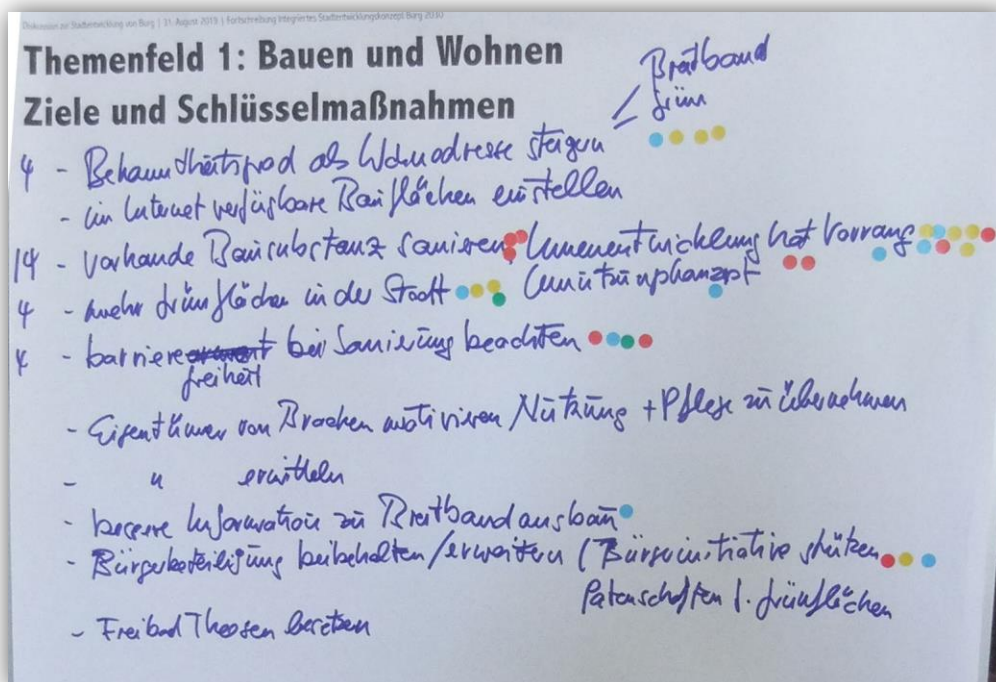 Diskussion zur Stadtentwicklung von Burg | 31. August 2019 | Fortschreibung Integriertes Stadtentwicklungskonzept Burg 2030
Themenfeld 1: Bauen und Wohnen
Ziele und Schlüsselmaßnahmen
Breitband
Grün
4 - Bekanntheitsgrad als Wohnadresse steigern
- im Internet verfügbare Bauflächen einstellen
14 - Vorhande Bausubstanz sanieren, Innenentwicklung hat Vorrang
4 - mehr Grünflächen in der Stadt (Umnutzungskonzept
4 - barriere
freiheit bei Sanierung beachten
- Eigentümer von Brachen motivieren Nutzung + Pflege zu übernehmen
- " ermitteln
- bessere Information zu Breitbandausbau
- Bürgerbeteiligung beibehalten/erweitern (Bürgerinitiative stützen
Patenschaften f. Grünflächen
- Freibad